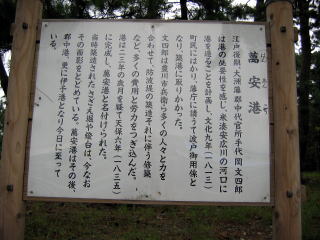 萬安港
江戸後期、大洲藩郡中代官所手代 岡文四郎
は港の必要性を感じ、米湊安広川の河口に
港を造ることを計画し、文化九年(一八一二)
町民にはかり、藩庁に請うて波戸御用係と
なり、築港に至りかかった。
文四郎は豊川市兵衛ら多くの人々と力を
合わせて、防波堤の築造それに伴う修築
など、多くの費用と労力をつぎ込んだ。
港は二三年の歳月を経て天保六年(一八三五)
に完成し、萬安港と名付けられた。
当時築造された 堀や灯台は、今なお
その面影をとどめている。萬安港はその後、
郡中港、更に伊予港となり今日に至って
いる。